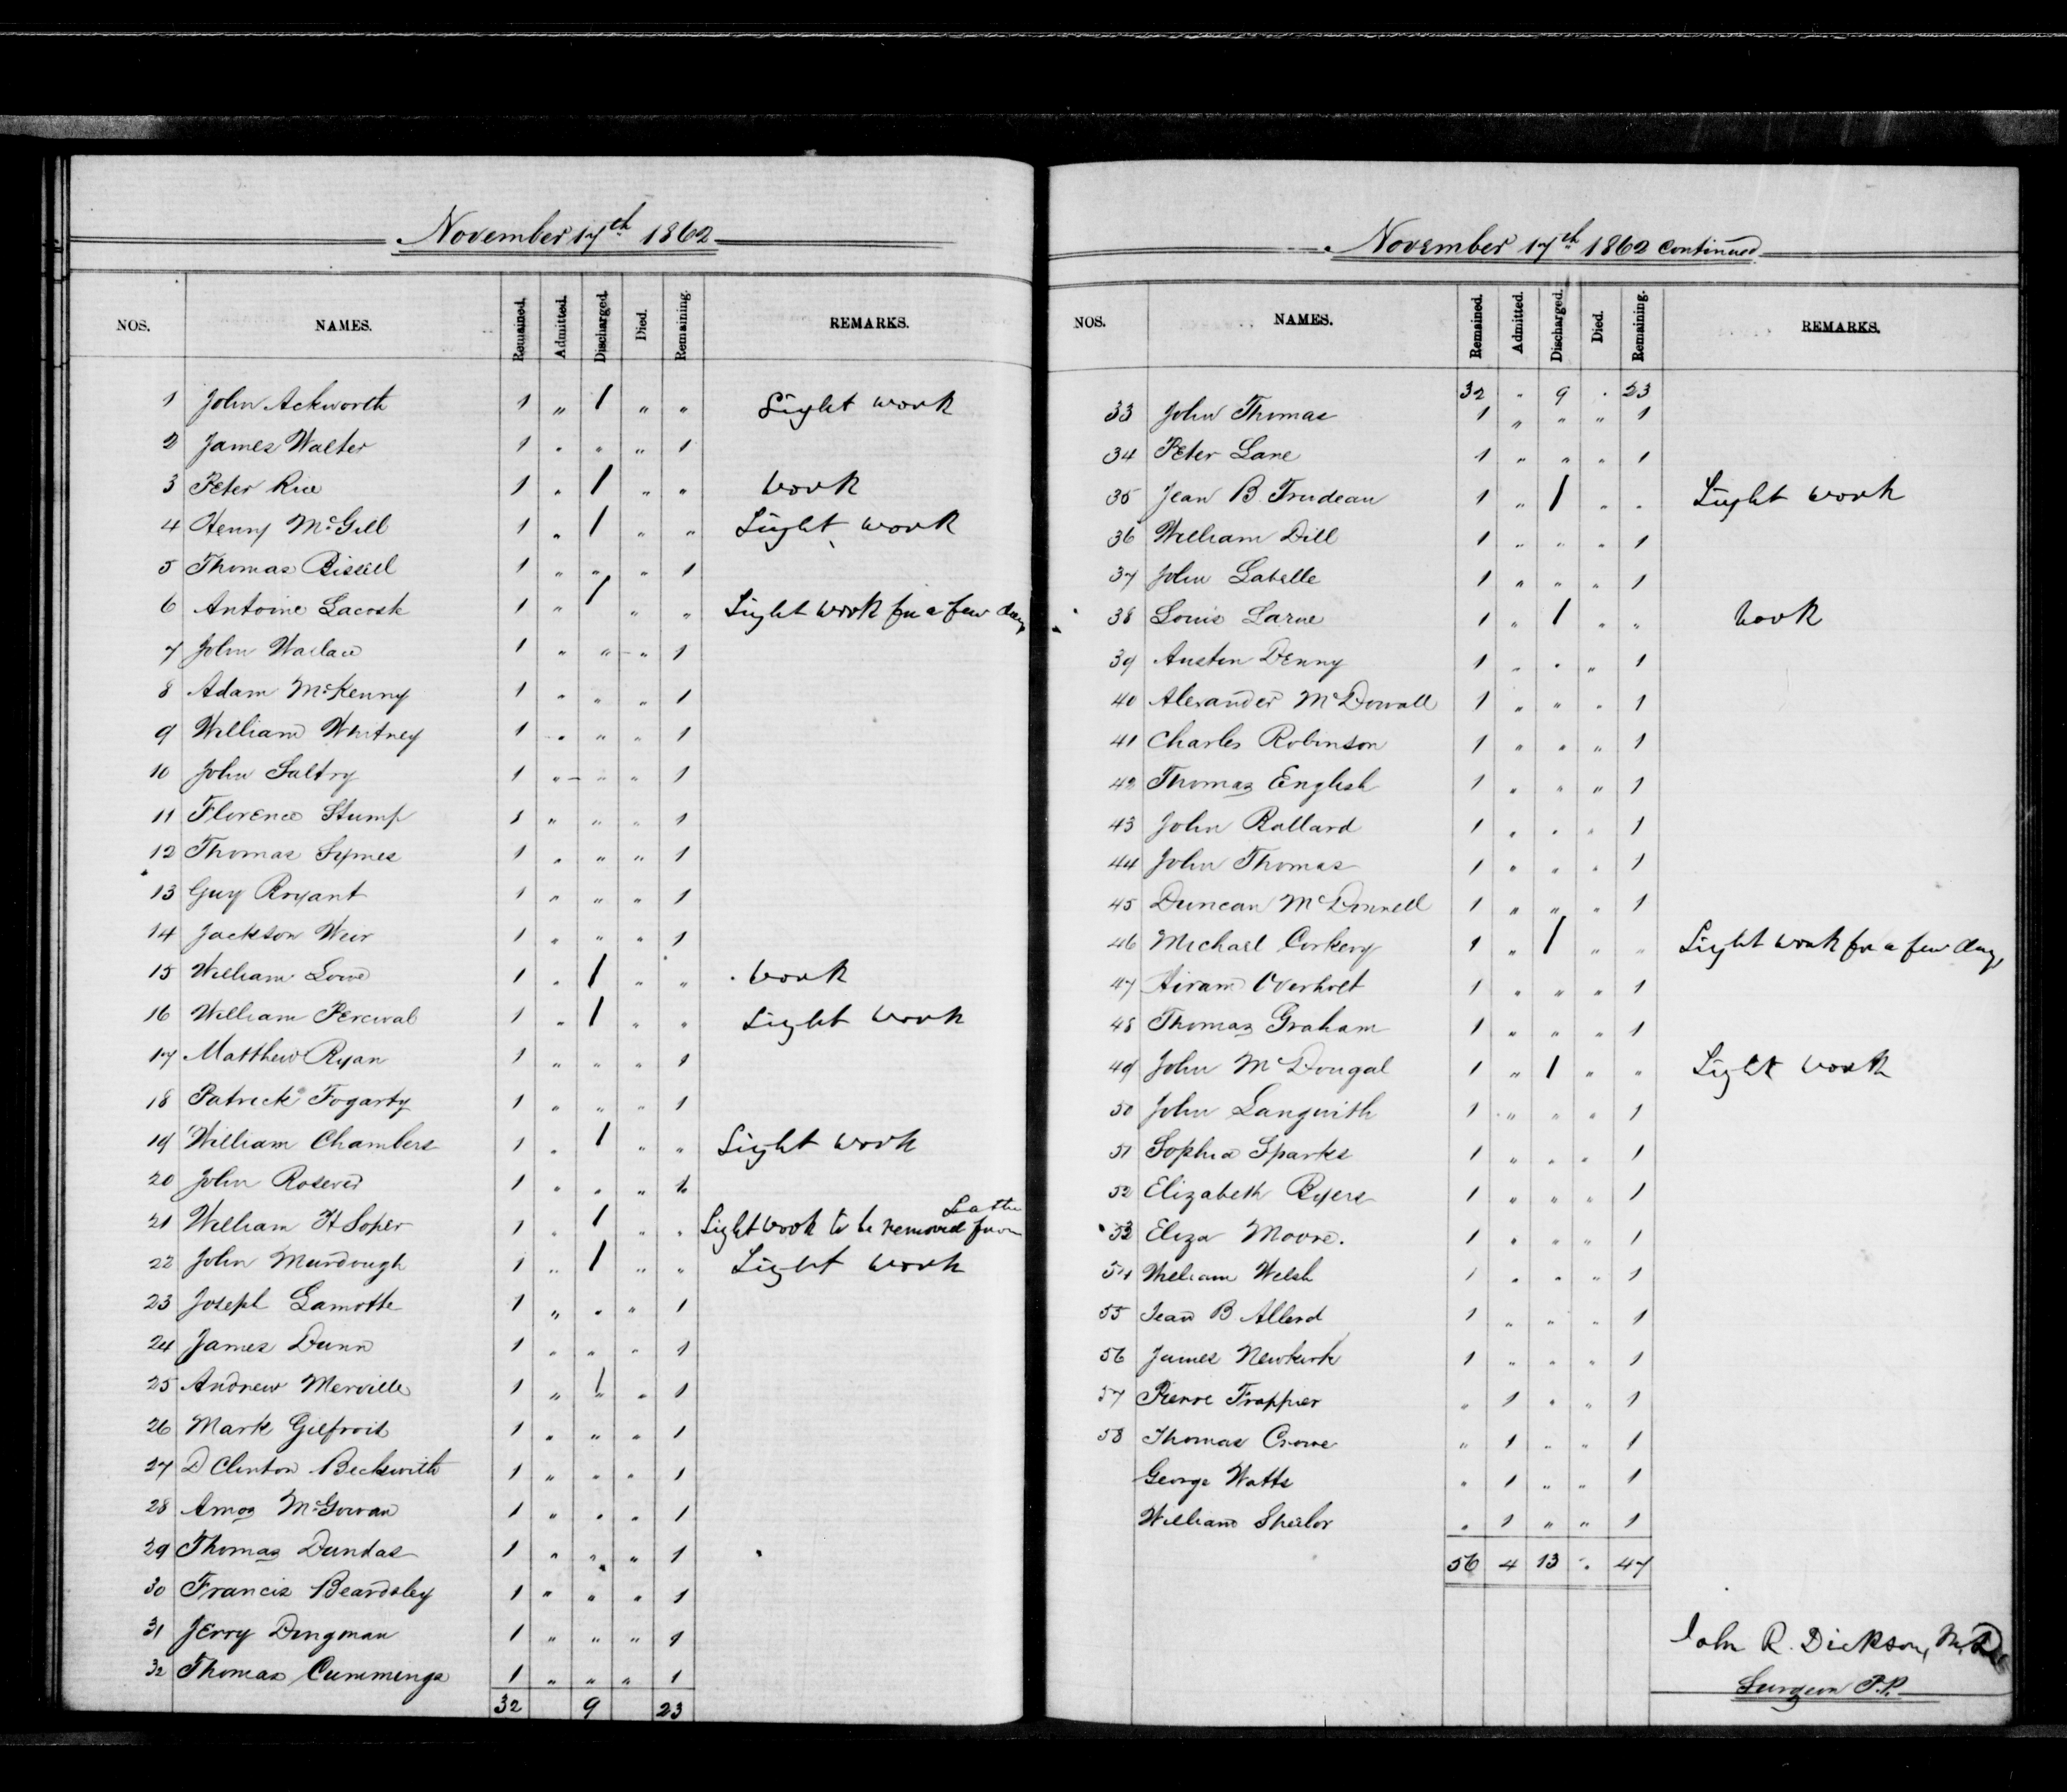 November 17th 1862
NOS. NAMES. Remained. Admitted. Discharged. Died. Remaining. REMARKS.
1 John Ackworth 1 " 1 " " Light work
2 James Walter 1 " " " 1
3 Peter Rice 1 " 1 " " Work
4 Henry McGill 1 " 1 " " Light work
5 Thomas Bissell 1 " " " 1
6 Antoine Lacoste 1 " 1 " " Light work for a few days
7 John Wallace 1 " " " 1
8 Adam McKenny 1 " " " 1
9 William Whitney 1 " " " 1
10 John Saltry 1 " " " 1
11 Florence Stump 1 " " " 1
12 Thomas Symes 1 " " " 1
13 Guy Bryant 1 " " " 1
14 Jackson Weir 1 " " " 1
15 William Lowe 1 " 1 " " Work
16 William Percival 1 " 1 " " Light work
17 Matthew Ryan 1 " " " 1
18 Patrick Fogarty 1 " " " 1
19 William Chambers 1 " 1 " " Light work
20 John Rosever 1 " " " 1
21 William H Soper 1 " 1 " " Light work to be removed from
22 John Murdough 1 " 1 " " Light work
23 Joseph Lamotte 1 " " " 1
24 James Dunn 1 " " " 1
25 Andrew Merville 1 " " " 1
26 Mark Gilfroid 1 " " " 1
27 D Clinton Beckwith 1 " " " 1
28 Amos McGowan 1 " " " 1
29 Thomas Dundas 1 " " " 1
30 Francis Beardsley 1 " " " 1
31 Jerry Dingman 1 " " " 1
32 Thomas Cummings 1 " " " 1
32 9 23
November 17th 1862 continued
NOS. NAMES. Remained. Admitted. Discharged. Died. Remaining. REMARKS.
32 " 9 " 23
33 John Thomas 1 " " " 1
34 Peter Lane 1 " " " 1
35 Jean B. Trudeau 1 " 1 " " Light work
36 William Dill 1 " " " 1
37 John Labelle 1 " " " 1
38 Louis Larue 1 " 1 " " Work
39 Austin Denny 1 " " " 1
40 Alexander McDowall 1 " " " 1
41 Charles Robinson 1 " " " 1
42 Thomas English 1 " " " 1
43 John Ballard 1 " " " 1
44 John Thomas 1 " " " 1
45 Duncan McDonnell 1 " " " 1
46 Michael Corkery 1 " 1 " " Light work for a few days
47 Hiram Overholt 1 " " " 1
48 Thomas Graham 1 " " " 1
49 John McDougal 1 " 1 " " Light work
50 John Langwith 1 " " " 1
51 Sophia Sparks 1 " " " 1
52 Elizabeth Byers 1 " " " 1
53 Eliza Moore. 1 " " " 1
54 William Welsh 1 " " " 1
55 Jean B Allerd 1 " " " 1
56 James Newkirk 1 " " " 1
57 Pierre Frappier " 1 " " 1
58 Thomas Crowe " 1 " " 1
George Watts " 1 " " 1
William " 1 " " 1
56 4 13 " 47
John R. Dickson, M.D.
Surgeon P.P.